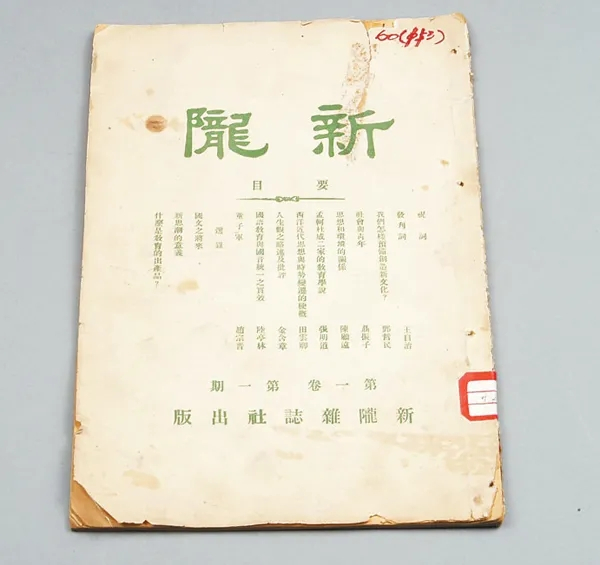 新隴
要目
祝詞
發刊詞 王自治
我們怎樣預備創造新文化？
社會與青年
思想和環境的關係 陳顧遠
孟軻杜威二家的教育學說 張明道
西洋近代思想與時勢變遷的梗概 田雲卿
人生觀之略述及批評 金含章
國語教育與國音統一之實效
童子軍 趙宗晉
選錄
國文之將來
新思潮的意義
什麼是教育的出產品？
第一卷 第一期
新隴雜誌社出版